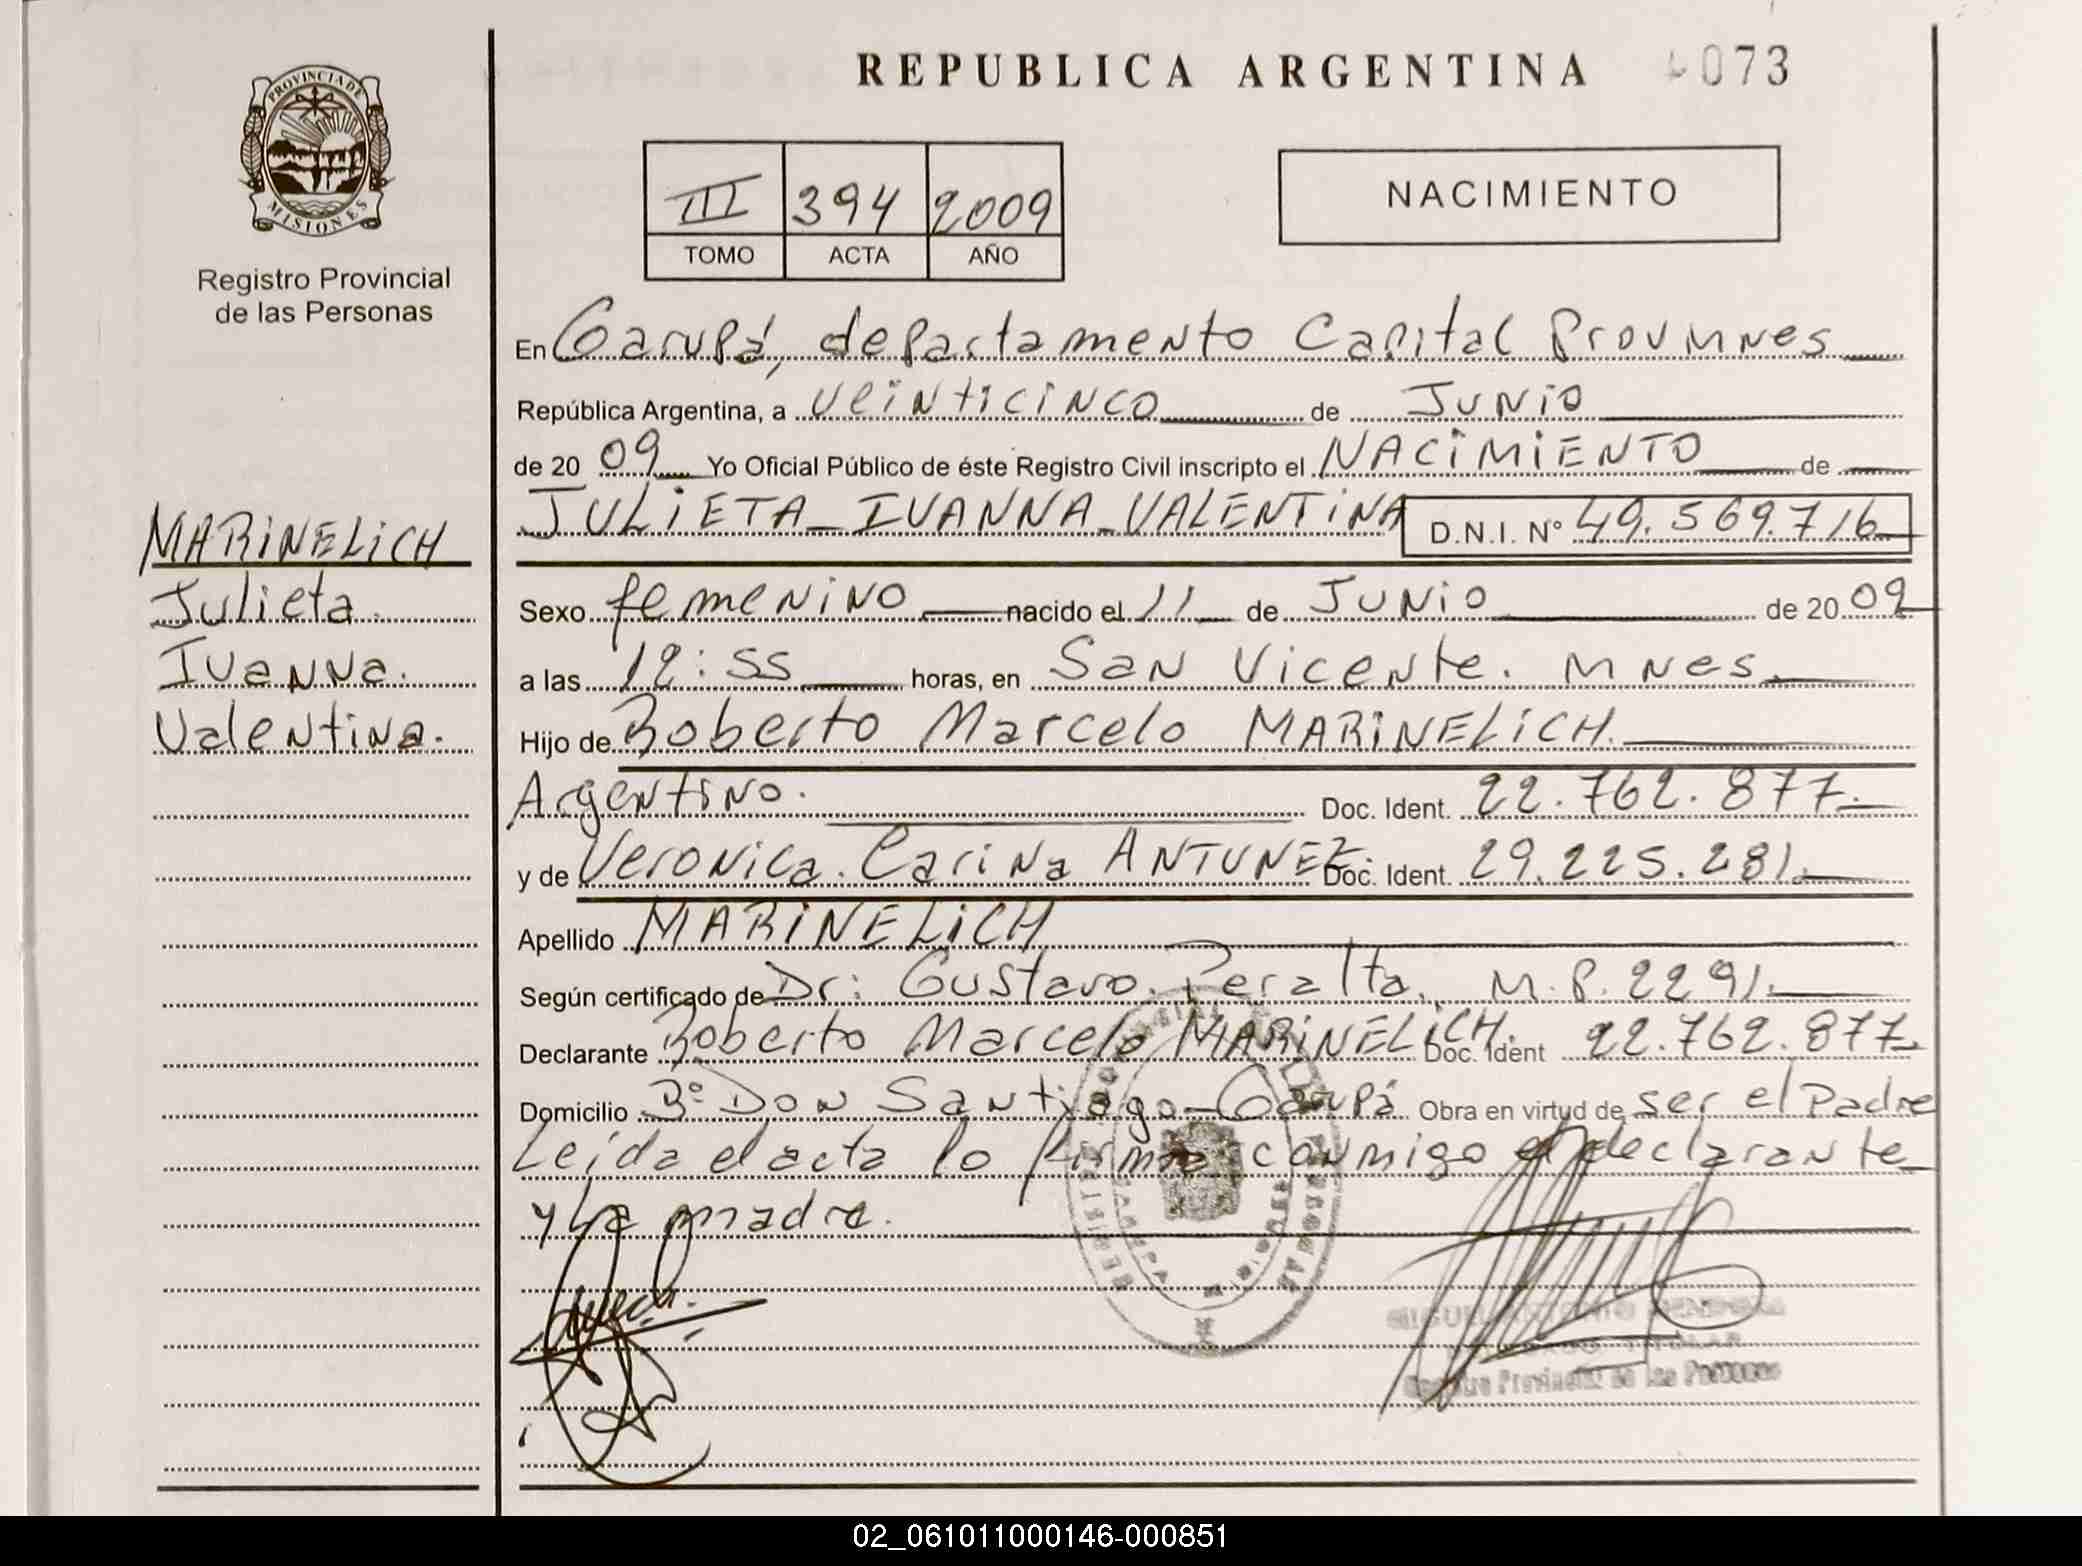 REPUBLICA ARGENTINA 073
PROVINCIA DE
MISIONES
Registro Provincial
de las Personas
III 394 2009
TOMO ACTA AÑO
NACIMIENTO
En Garupá, departamento Capital Prov Mnes
República Argentina, a veinticinco de Junio
de 20 09 Yo Oficial Público de éste Registro Civil inscripto el NACIMIENTO de
JULIETA IVANNA VALENTINA D.N.I. Nº 49.569.716
MARINELICH
Julieta.
Ivanna.
Valentina.
Sexo femenino nacido el 11 de Junio de 20 09
a las 12:55 horas, en San Vicente. Mnes
Hijo de Roberto Marcelo MARINELICH.
Argentino. Doc. Ident. 22.762.877.
y de Veronica. Carina ANTUNEZ. Doc. Ident. 29.225.281.
Apellido MARINELICH
Según certificado de Dr: Gustavo. Peralta. M.P. 2291.
Declarante Roberto Marcelo MARINELICH. Doc. Ident 22.762.877.
Domicilio Bº Don Santiago - Garupá Obra en virtud de ser el Padre
Leída el acta lo firma conmigo el declarante
y la madre.
Registro Provincial de las Personas
02_061011000146-000851